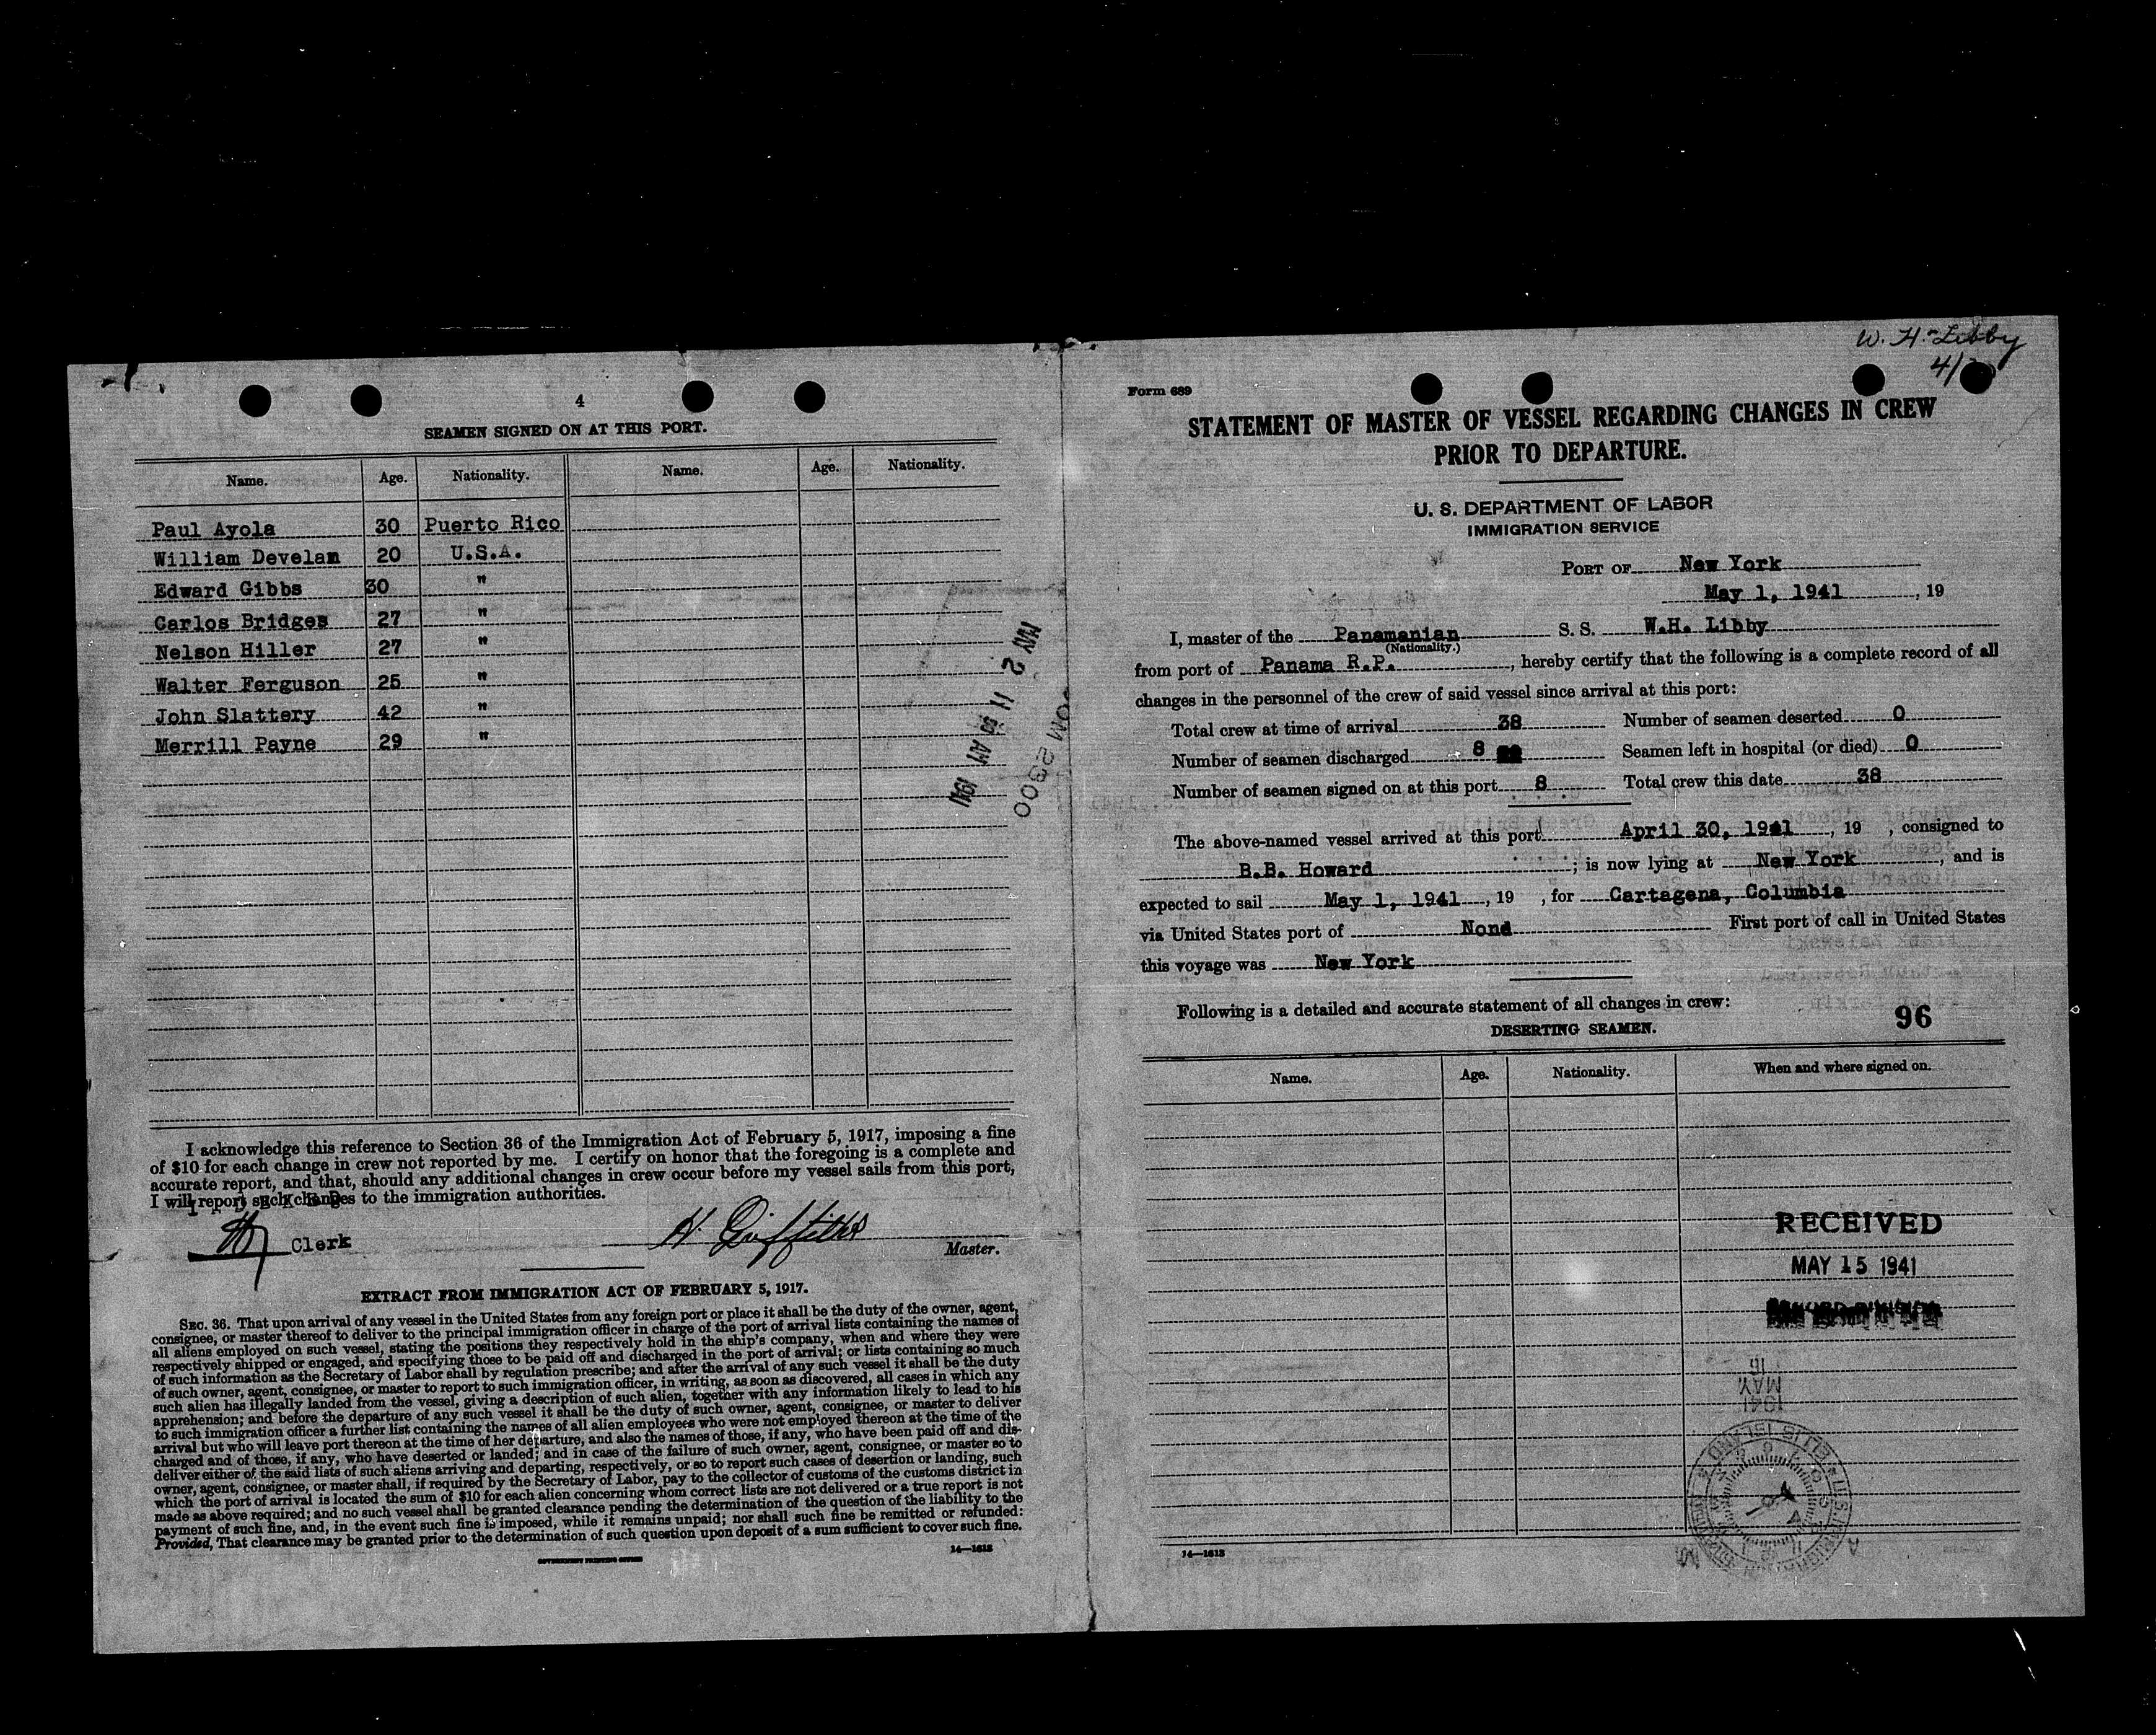 4
SEAMEN SIGNED ON AT THIS PORT.
Name. Age. Nationality. Name. Age. Nationality.
Paul Ayola 30 Puerto Rico
William Develan 20 U.S.A.
Edward Gibbs 30 "
Carlos Bridges 27 "
Nelson Hiller 27 "
Walter Ferguson 25 "
John Slattery 42 "
Merrill Payne 29 "
MAY 2 11 AM 1941
I acknowledge this reference to Section 36 of the Immigration Act of February 5, 1917, imposing a fine
of $10 for each change in crew not reported by me. I certify on honor that the foregoing is a complete and
accurate report, and that, should any additional changes in crew occur before my vessel sails from this port,
I will report such changes to the immigration authorities.
Clerk
H. Griffiths
Master.
EXTRACT FROM IMMIGRATION ACT OF FEBRUARY 5, 1917.
SEC. 36. That upon arrival of any vessel in the United States from any foreign port or place it shall be the duty of the owner, agent,
consignee, or master thereof to deliver to the principal immigration officer in charge of the port of arrival lists containing the names of
all aliens employed on such vessel, stating the positions they respectively hold in the ship's company, when and where they were
respectively shipped or engaged, and specifying those to be paid off and discharged in the port of arrival; or lists containing so much
of such information as the Secretary of Labor shall by regulation prescribe; and after the arrival of any such vessel it shall be the duty
of such owner, agent, consignee, or master to report to such immigration officer, in writing, as soon as discovered, all cases in which any
such alien has illegally landed from the vessel, giving a description of such alien, together with any information likely to lead to his
apprehension; and before the departure of any such vessel it shall be the duty of such owner, agent, consignee, or master to deliver
to such immigration officer a further list containing the names of all alien employees who were not employed thereon at the time of the
arrival but who will leave port thereon at the time of her departure, and also the names of those, if any, who have been paid off and dis-
charged and of those, if any, who have deserted or landed; and in case of the failure of such owner, agent, consignee, or master so to
deliver either of the said lists of such aliens arriving and departing, respectively, or so to report such cases of desertion or landing, such
owner, agent, consignee, or master shall, if required by the Secretary of Labor, pay to the collector of customs of the customs district in
which the port of arrival is located the sum of $10 for each alien concerning whom correct lists are not delivered or a true report is not
made as above required; and no such vessel shall be granted clearance pending the determination of the question of the liability to the
payment of such fine, and, in the event such fine is imposed, while it remains unpaid; nor shall such fine be remitted or refunded:
Provided, That clearance may be granted prior to the determination of such question upon deposit of a sum sufficient to cover such fine.
14—1618
GOVERNMENT PRINTING OFFICE
W. H. Libby
4/
Form 689
STATEMENT OF MASTER OF VESSEL REGARDING CHANGES IN CREW
PRIOR TO DEPARTURE.
U. S. DEPARTMENT OF LABOR
IMMIGRATION SERVICE
PORT OF New York
May 1, 1941, 19
I, master of the Panamanian S. S. W.H. Libby
(Nationality.)
from port of Panama R.P., hereby certify that the following is a complete record of all
changes in the personnel of the crew of said vessel since arrival at this port:
Total crew at time of arrival 38 Number of seamen deserted 0
Number of seamen discharged 8 Seamen left in hospital (or died) 0
Number of seamen signed on at this port 8 Total crew this date 38
The above-named vessel arrived at this port April 30, 1941, 19 , consigned to
B.B. Howard ; is now lying at New York, and is
expected to sail May 1, 1941, 19 , for Cartagena, Columbia
via United States port of Nond First port of call in United States
this voyage was New York
Following is a detailed and accurate statement of all changes in crew:
DESERTING SEAMEN.
96
Name. Age. Nationality. When and where signed on.
RECEIVED
MAY 15 1941
RECORD DIVISION
MAY
1941
14—1618